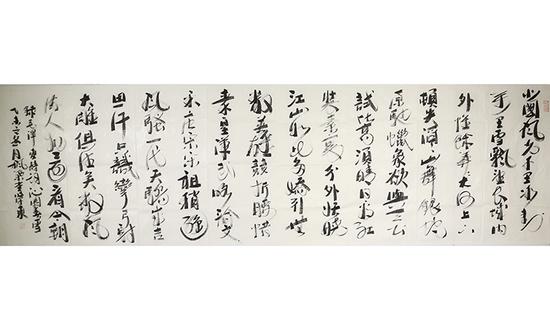 北國風光千里冰封
万里雪飘望长城内
外惟餘莽莽大河上下
頓失滔滔山舞银蛇
原馳蠟象欲與天公
試比高须晴日看红
装素裹分外妖娆
江山如此多嬌引無
數英雄競折腰惜
秦皇漢武略输文
采唐宗宋祖稍逊
风骚一代天骄成吉
思汗只識彎弓射
大雕俱往矣数风
流人物還看今朝
錄毛澤東詩詞沁园春雪